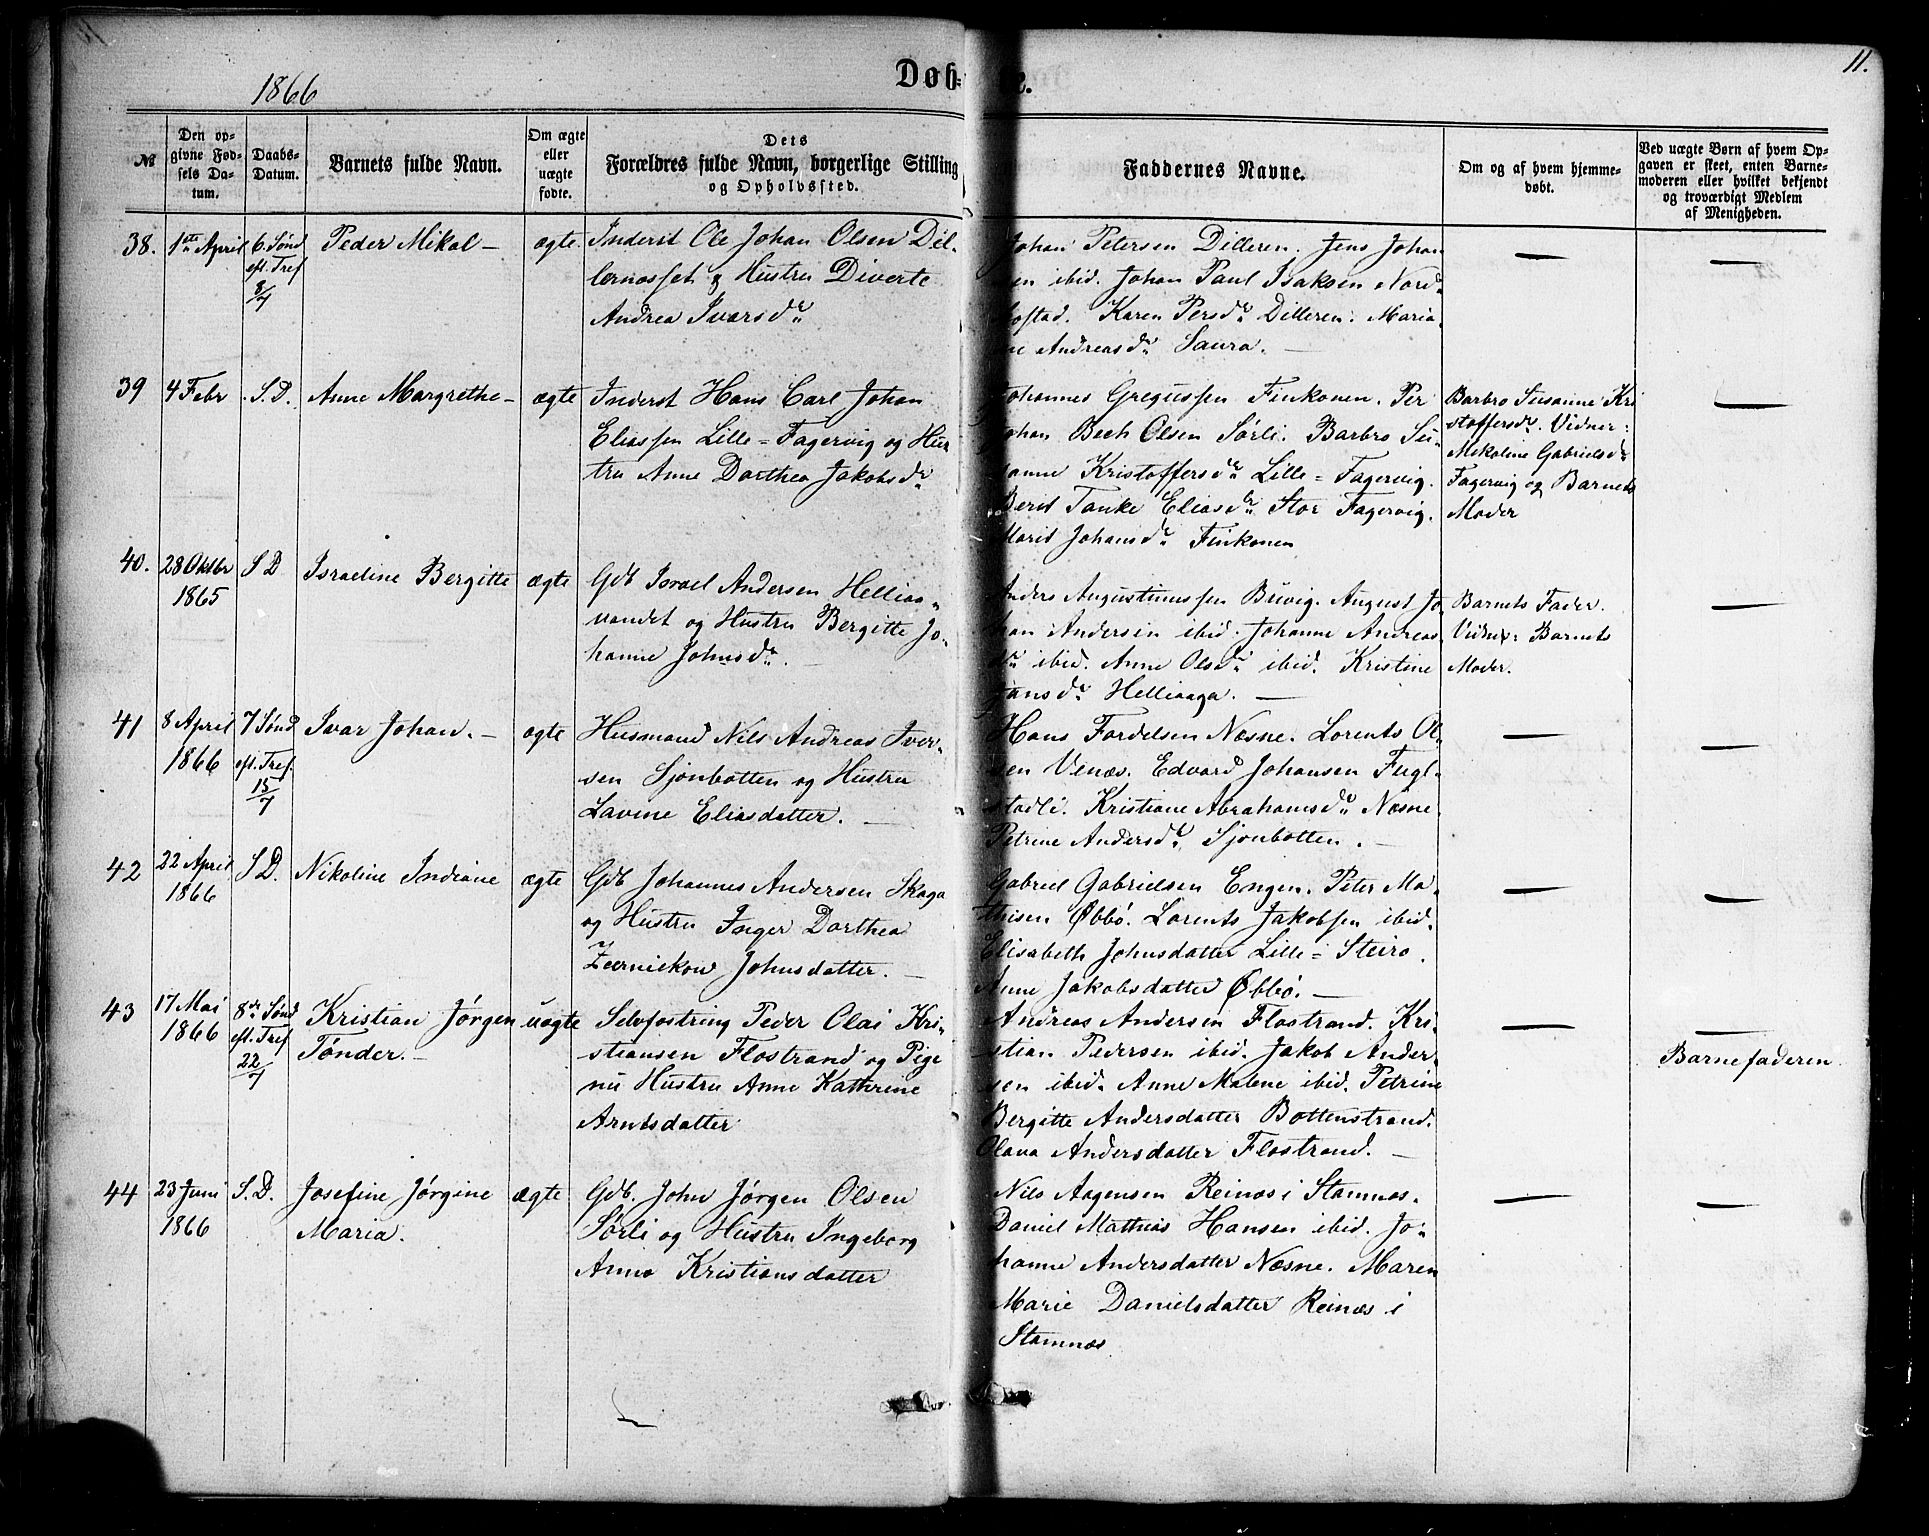 1866
Døb-
e.
11.
№
Den op-
givne Fød-
sels Da-
tum.
Daabs-
Datum.
Barnets fulde Navn.
Om ægte
eller
uægte
fødte.
Dets
Forældres fulde Navn, borgerlige Stilling
og Opholdssted.
Faddernes Navne.
Om og af hvem hjemme-
døbt.
Ved uægte Børn af hvem Op-
gaven er skeet, enten Barne-
moderen eller hvilket bekjendt
og troværdigt Medlem
af Menigheden.
38.
1ste April
6. Sønd
eft. Tref
8/7
Peder Mikal –
ægte.
Inderst Ole Johan Olsen Dil-
lernæsset & Hustru Diverte
Andrea Ivarsdr
Johan Petersen Dilleren. Jens Johan
sen ibid. Johan Paul Isaksen Nord-
bostad. Karen Persdr Dilleren. Maria-
ne Andreasdr Saura. –
39
4 Febr
S. D.
Anne Margrethe –
ægte
Inderst Hans Carl Johan
Eliassen Lille = Fagervig og Hus-
tru Anne Dorthea Jakobsdr
Johannes Gregussen Finkonen. Per
Johan Bech Olsen Sørli. Barbro Su-
sanne Kristoffersdr Lille = Fagervig.
Berit Tanke Eliasdr Stor Fagervig.
Marit Johansdr Finkonen
Barbro Susanne Kri
stoffersdr. Vidner:
Mekoline Gabrielsdr
Fagervig og Barnets
Moder
40.
28 Oktbr
1865
S D
Israeline Bergitte
ægte
Gdb Israel Andersen Hellias-
vandet og Hustru Bergitte Jo-
hanne Johnsdr. –
Anders Augustinussen Buvig. August Jo-
han Andersen ibid. Johanne Andreas
dr ibid. Anne Olsdr ibid. Kristine
Hansdr Helliaaga. –
Barnets Fader.
Vidner: Barnets
Moder.
41
8 April
1866
7 Sønd
eft. Tref.
15/7
Ivar Johan. –
ægte
Husmand Nils Andreas Iver-
sen Sjonbotten og Hustru
Lavine Eliasdatter. –
Hans Fordelsen Næsne. Lorents Ol-
sen Venæs. Edvard Johansen Fugl-
stadli. Kristiane Abrahamsdr Næsne.
Petrine Andersdr, Sjonbotten. –
42
22 April
1866
S. D.
Nikoline Indiane
ægte
Gdb Johannes Andersen Skaga
og Hustru Inger Dorthea
Zernickow Johnsdatter. –
Gabriel Gabrielsen Engen. Peter Ma-
thisen Øbbø. Lorents Jakobsen ibid.
Elisabeth Johnsdatter Lille = Steiro.
Anne Jakobsdatter Øbbø. –
43
17 Mai
1866
8de Sønd
eft. Tref
22/7
Kristian Jørgen
Tønder. –
uægte
Selvfostring Peder Olai Kri-
stiansen Flostrand og Pige
nu Hustru Anne Kathrine
Arntsdatter
Andreas Andersen Flostrand. Kri-
stian Pedersen ibid. Jakob Ander-
sen ibid. Anne Malene ibid. Petrine
Bergitte Andersdatter Bottenstrand.
Olava Andersdatter Flostrand. –
Barnefaderen
44
23 Juni
1866
S. D.
Josefine Jørgine
Maria.
ægte
Gdb. John Jørgen Olsen
Sørli og Hustru Ingeborg
Anna Kristiansdatter
Nils Aagensen Reinæs i Stamnæs.
Daniel Mathias Hansen ibid. Jo-
hanne Andersdatter Næsne. Maren
Marie Danielsdatter Reinæs i
Stamnæs